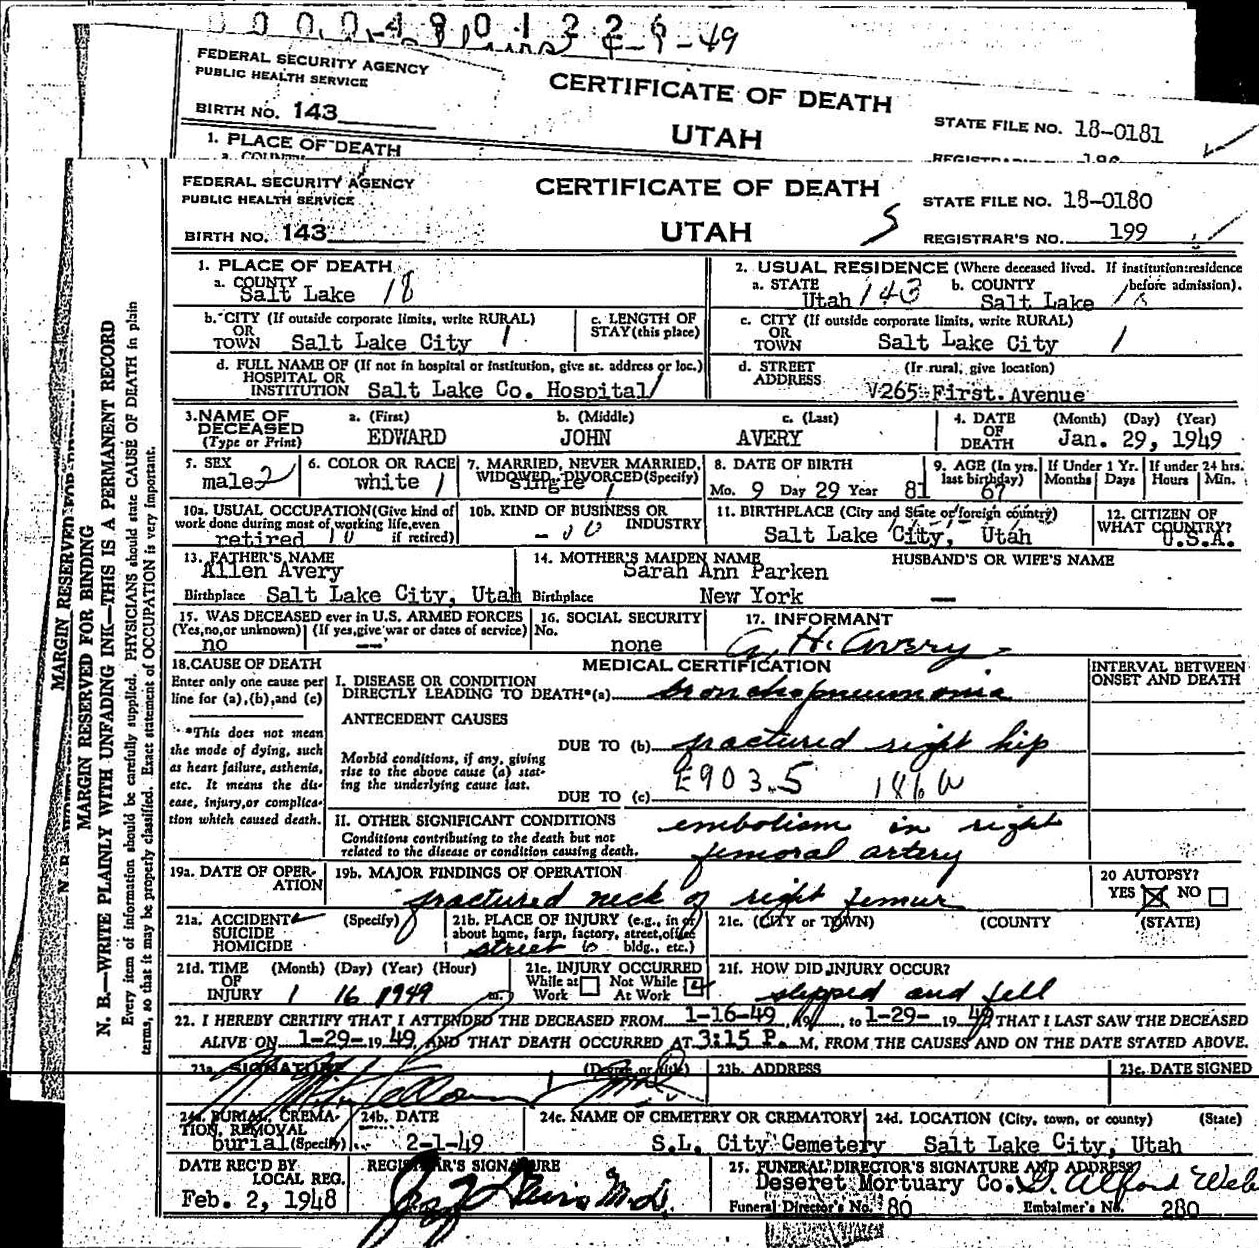 0 0 0 0 4 9 0 1 2 2 6
49
FEDERAL SECURITY AGENCY
PUBLIC HEALTH SERVICE
CERTIFICATE OF DEATH
BIRTH NO. 143
UTAH
STATE FILE NO. 18-0181
1. PLACE OF DEATH
a. COUNTY
FEDERAL SECURITY AGENCY
PUBLIC HEALTH SERVICE
CERTIFICATE OF DEATH
STATE FILE NO. 18-0180
BIRTH NO. 143
UTAH
5
REGISTRAR'S NO. 199
MARGIN RESERVED FOR BINDING
N. B.—WRITE PLAINLY WITH UNFADING INK—THIS IS A PERMANENT RECORD
Every item of information should be carefully supplied. PHYSICIANS should state CAUSE OF DEATH in plain
terms, so that it may be properly classified. Exact statement of OCCUPATION is very important.
1. PLACE OF DEATH
a. COUNTY
Salt Lake 18
2. USUAL RESIDENCE (Where deceased lived. If institution:residence
before admission).
a. STATE Utah 143 b. COUNTY Salt Lake
b. CITY (If outside corporate limits, write RURAL)
OR
TOWN Salt Lake City 1
c. LENGTH OF
STAY (this place)
c. CITY (If outside corporate limits, write RURAL)
OR
TOWN Salt Lake City 1
d. FULL NAME OF (If not in hospital or institution, give st. address or loc.)
HOSPITAL OR
INSTITUTION Salt Lake Co. Hospital
d. STREET (If rural, give location)
ADDRESS 265 First Avenue
3. NAME OF
DECEASED
(Type or Print)
a. (First) b. (Middle) c. (Last)
EDWARD JOHN AVERY
4. DATE
OF
DEATH
(Month) (Day) (Year)
Jan. 29, 1949
5. SEX
male 2
6. COLOR OR RACE
white 1
7. MARRIED, NEVER MARRIED,
WIDOWED, DIVORCED (Specify)
single 1
8. DATE OF BIRTH
Mo. 9 Day 29 Year 81
9. AGE (In yrs.
last birthday)
67
If Under 1 Yr.
Months Days
If under 24 hrs.
Hours Min.
10a. USUAL OCCUPATION (Give kind of
work done during most of working life, even
if retired)
retired 10
10b. KIND OF BUSINESS OR
INDUSTRY
11. BIRTHPLACE (City and State or foreign country)
Salt Lake City, Utah
12. CITIZEN OF
WHAT COUNTRY?
U.S.A.
13. FATHER'S NAME
Allen Avery
Birthplace Salt Lake City, Utah
14. MOTHER'S MAIDEN NAME
Sarah Ann Parken
Birthplace New York
HUSBAND'S OR WIFE'S NAME
—
15. WAS DECEASED ever in U.S. ARMED FORCES
(Yes, no, or unknown) (If yes, give war or dates of service)
no —
16. SOCIAL SECURITY
No.
none
17. INFORMANT
H. Avery
18. CAUSE OF DEATH
Enter only one cause per
line for (a), (b), and (c)
*This does not mean
the mode of dying, such
as heart failure, asthenia,
etc. It means the dis-
ease, injury, or complica-
tion which caused death.
MEDICAL CERTIFICATION
INTERVAL BETWEEN
ONSET AND DEATH
I. DISEASE OR CONDITION
DIRECTLY LEADING TO DEATH*(a) bronchopneumonia
ANTECEDENT CAUSES
DUE TO (b) fractured right hip
Morbid conditions, if any, giving
rise to the above cause (a) stat-
ing the underlying cause last.
E903.5 186a
DUE TO (c)
II. OTHER SIGNIFICANT CONDITIONS
Conditions contributing to the death but not
related to the disease or condition causing death.
embolism in right
femoral artery
19a. DATE OF OPER-
ATION
19b. MAJOR FINDINGS OF OPERATION
fractured neck of right femur
20 AUTOPSY?
YES NO
21a. ACCIDENT
SUICIDE
HOMICIDE
(Specify)
21b. PLACE OF INJURY (e.g., in or
about home, farm, factory, street, office
bldg., etc.)
street
21c. (CITY or TOWN) (COUNTY) (STATE)
21d. TIME
OF
INJURY
(Month) (Day) (Year) (Hour)
1 16 1949 m.
21e. INJURY OCCURRED
While at Work Not While At Work
21f. HOW DID INJURY OCCUR?
slipped and fell
22. I HEREBY CERTIFY THAT I ATTENDED THE DECEASED FROM 1-16-49, 19, to 1-29- 19 49, THAT I LAST SAW THE DECEASED
ALIVE ON 1-29- 19 49, AND THAT DEATH OCCURRED AT 3:15 P. M, FROM THE CAUSES AND ON THE DATE STATED ABOVE.
23a. SIGNATURE (Degree or title)
23b. ADDRESS
23c. DATE SIGNED
24a. BURIAL, CREMA-
TION, REMOVAL
burial (Specify)
24b. DATE
2-1-49
24c. NAME OF CEMETERY OR CREMATORY
S.L. City Cemetery
24d. LOCATION (City, town, or county) (State)
Salt Lake City, Utah
DATE REC'D BY
LOCAL REG.
Feb. 2, 1948
REGISTRAR'S SIGNATURE
25. FUNERAL DIRECTOR'S SIGNATURE AND ADDRESS
Deseret Mortuary Co.
Funeral Director's No. 80 Embalmer's No. 280